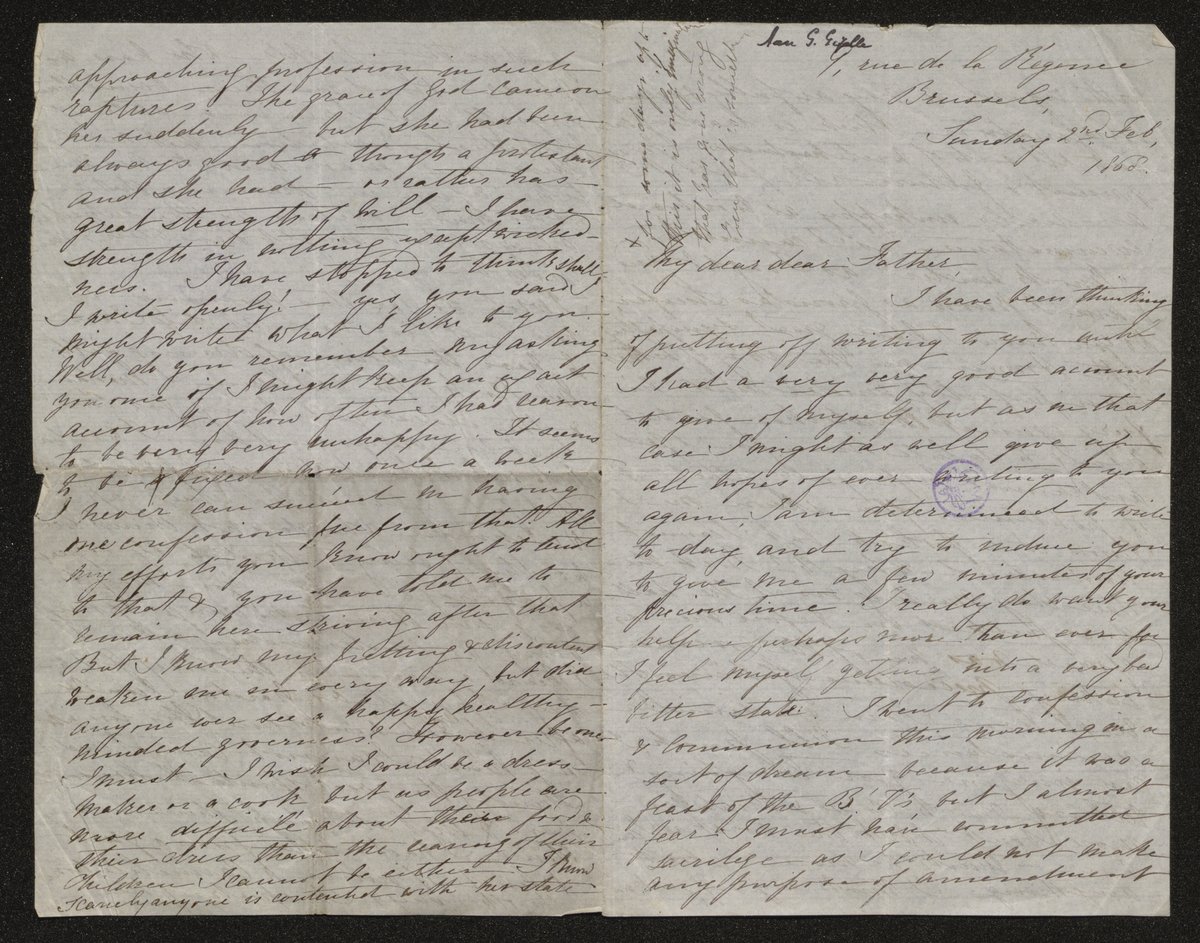 Ann G. Gizelle
rue de la Régence
Brussels,
Sunday 2nd Feb,
1868.
My dear dear Father,
I have been thinking
of putting off writing to you until
I had a very very good account
to give of myself, but as in that
case I might as well give up
all hopes of ever writing to you
again, I am determined to write
to-day, and try to induce you
to give me a few minutes of your
precious time. I really do want your
help – perhaps more than ever for
I feel myself getting into a very bad
bitter state. I went to confession
& communion this morning in a
sort of dream because it was a
feast of the B. V's but I almost
fear I must have committed
sacrilege as I could not make
any purpose of amendment
& for some days
this it is only
that has
even that
approaching profession in such
raptures The grace of God came on
her suddenly – but she had been
always good & though a protestant
and she had – or rather has –
great strength of will – I have
strength in nothing except wicked-
ness. I have stopped to think shall
I write openly! – yes, you said I
might write what I like to you.
Well, do you remember my asking
you once if I might keep an exact
account of how often I had reason
to be very very unhappy. It seems
to be fixed now once a week
I never can succeed in having
one confession free from that. All
my efforts you know ought to tend
to that & you have told me to
remain here striving after that
But I know my fretting & discontent
weaken me in every way but did
anyone ever see a happy healthy-
minded governess? However be one
I must – I wish I could be a dress-
maker or a cook but as people are
more difficile about their food &
their dress than the rearing of their
children I cannot be either. I know
scarcely anyone is contented with her state